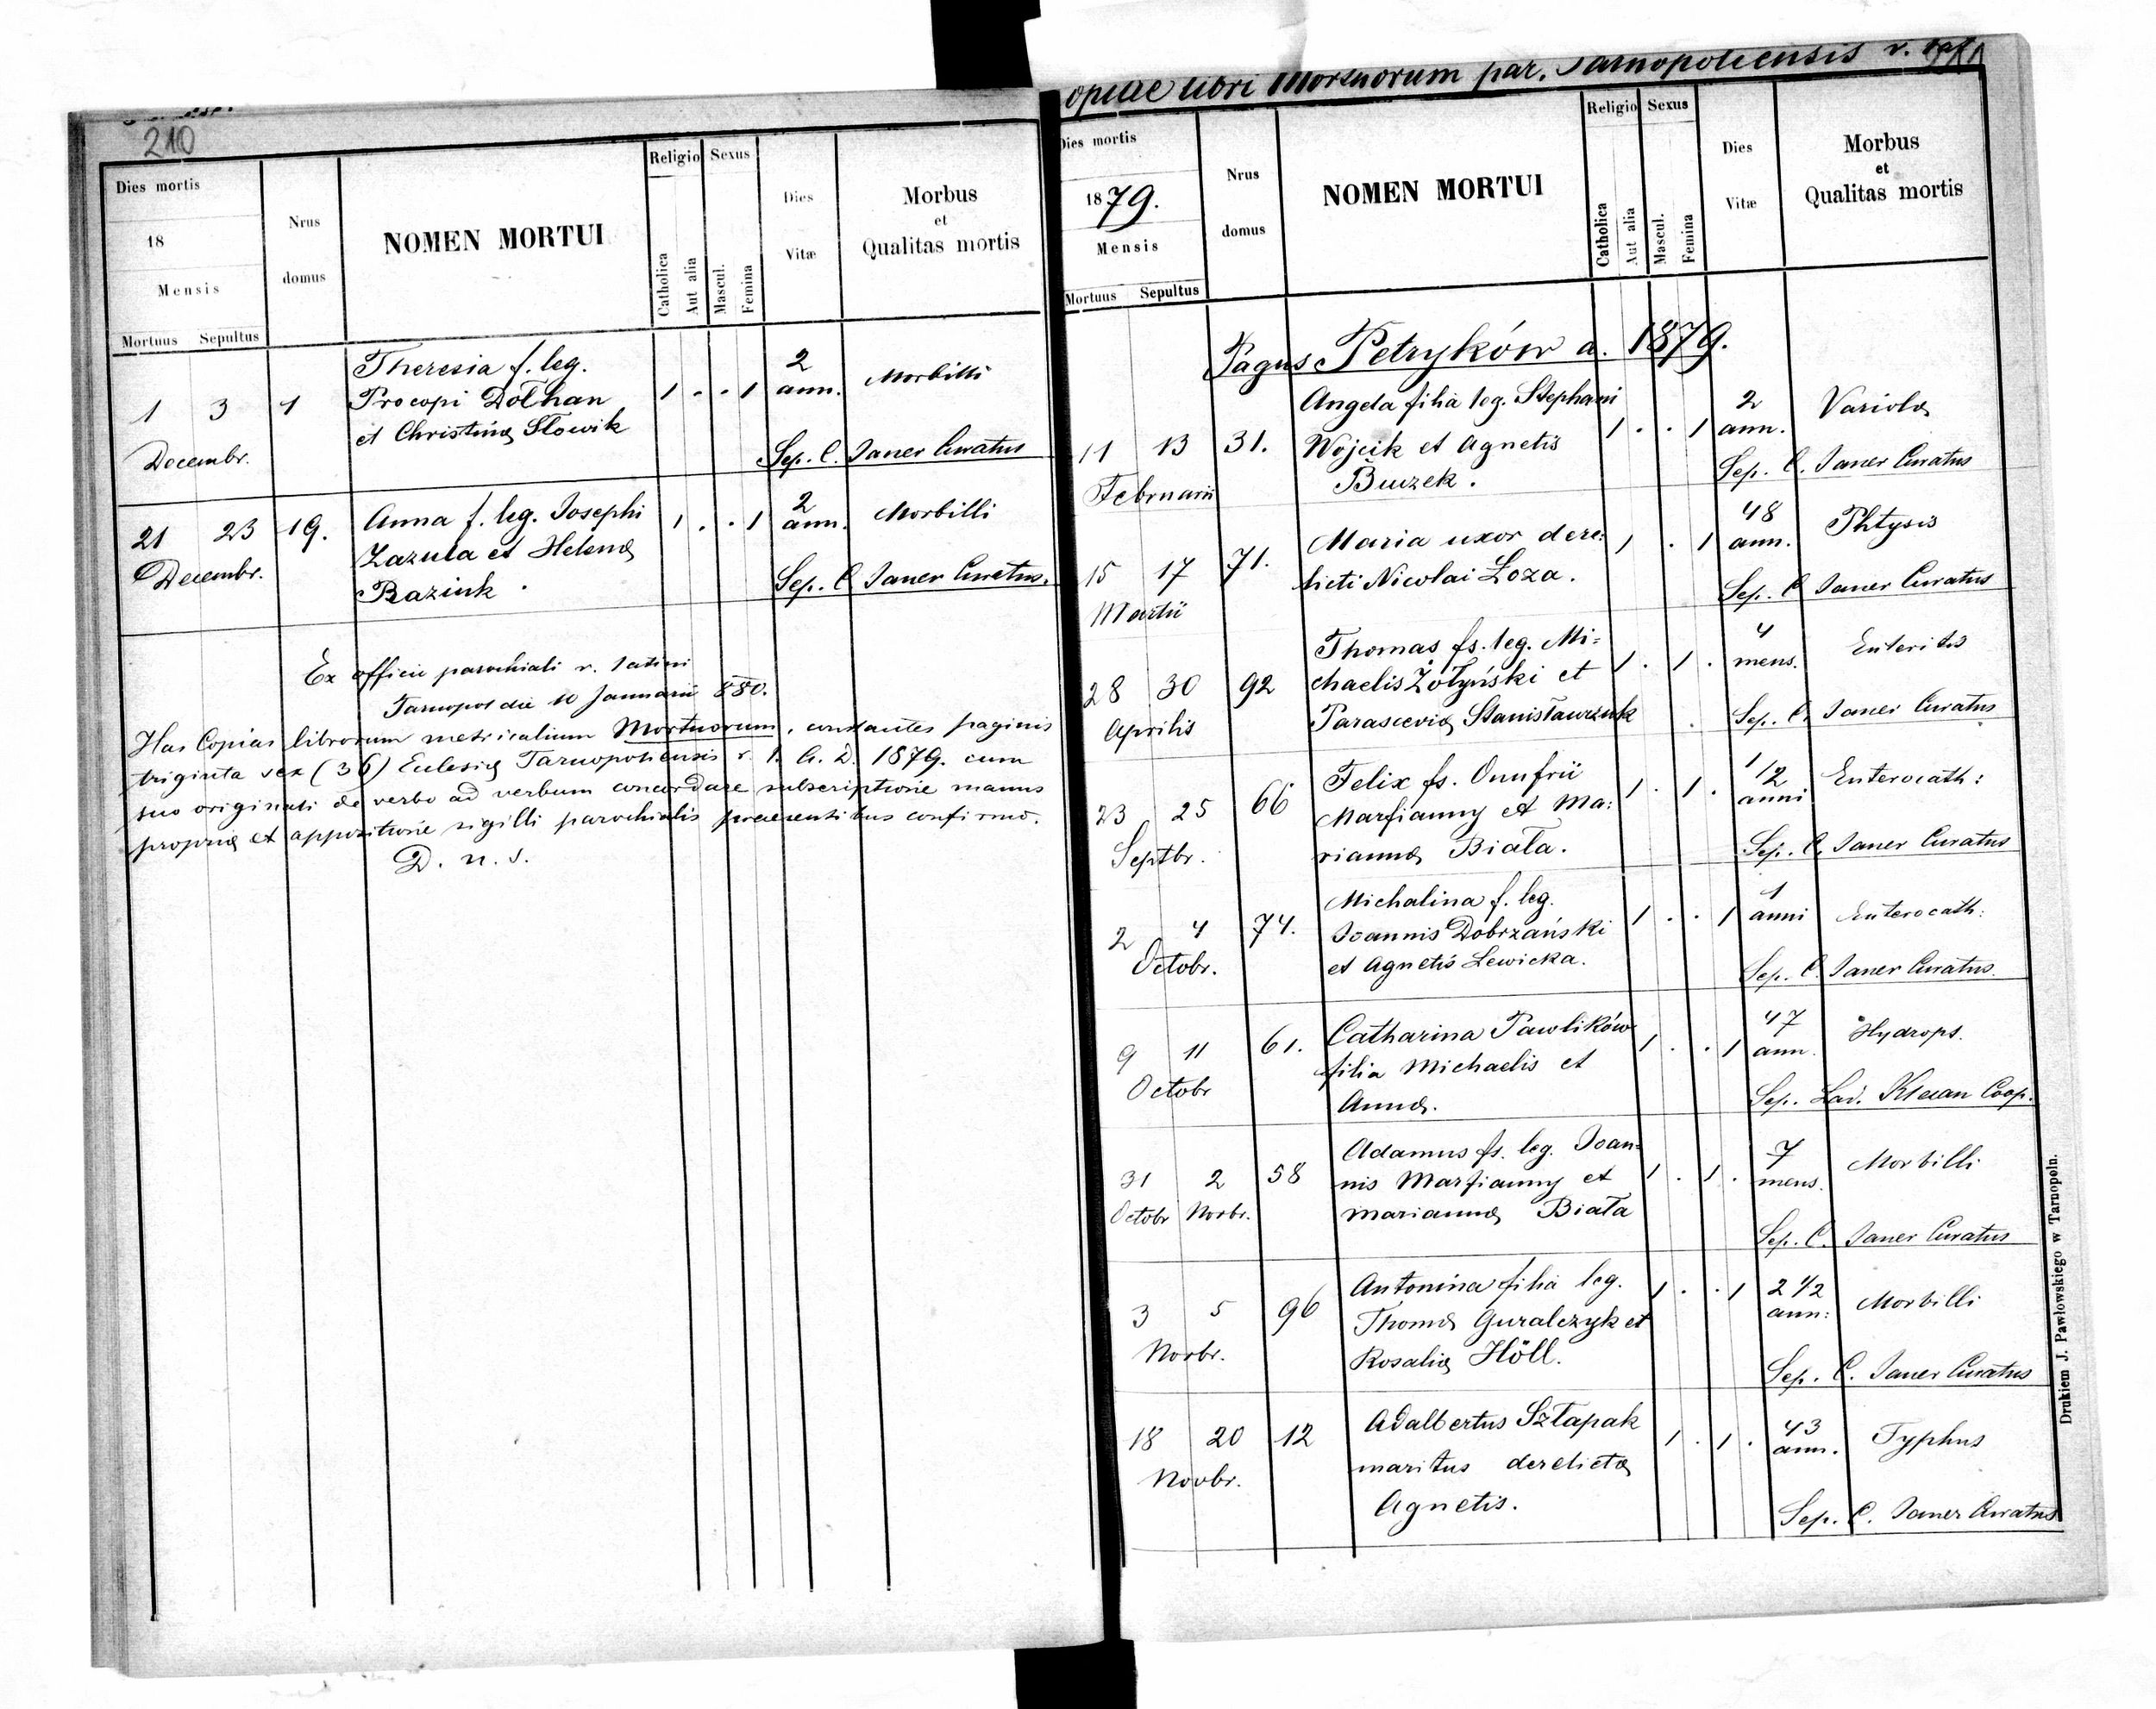 210
Dies mortis
18
Mensis
Mortuus Sepultus
Nrus
domus
NOMEN MORTUI
Religio Sexus
Catholica
Aut alia
Mascul.
Femina
Dies
Vitæ
Morbus
et
Qualitas mortis
Theresia f. leg.
1 3 1 Procopi Dołhan 1 . . 1 2 ann. Morbilli
Decembr. et Christinæ Słowik
Sep. C. Janer Curatus
21 23 19. Anna f. leg. Josephi 1 . . 1 2 ann. Morbilli
Decembr. Zazula et Helenæ
Baziuk.
Sep. C. Janer Curatus.
Ex officio parochiali r. latini
Tarnopol die 10 Januarii 880.
Has Copias librorum metricalium Mortuorum, constantes paginis
triginta sex (36) Eclesiæ Tarnopoliensis r. l. A. D. 1879. cum
suo originali de verbo ad verbum concordare subscriptione manus
propriæ et appositione sigilli parochialis praesentibus confirmo.
D. n. s.
opiae libri Mortuorum par. Tarnopoliensis r. lat.
Dies mortis
1879.
Mensis
Mortuus Sepultus
Nrus
domus
NOMEN MORTUI
Religio Sexus
Catholica
Aut alia
Mascul.
Femina
Dies
Vitæ
Morbus
et
Qualitas mortis
Pagus Petryków a. 1879.
Angela filia leg. Stephani
11 13 31. Wojcik et Agnetis 1 . . 1 2 ann. Variola
Februarii Buczek.
Sep. C. Janer Curatus
Maria uxor dere=
15 17 71. licti Nicolai Łoza. 1 . 1 48 ann. Phtysis
Martii
Sep. C. Janer Curatus
Thomas fs. leg. Mi=
28 30 92 chaelis Żółyński et 1 . 1 . 4 mens. Enteritis
Aprilis Parasceviæ Stanisławczuk
Sep. C. Janer Curatus
Felix fs. Onufrii
23 25 66 Marfianny et Ma= 1 . 1 . 1/2 anni Enterocath:
Septbr. riannæ Biała.
Sep. C. Janer Curatus
Michalina f. leg.
2 4 74. Joannis Dobrzański 1 . . 1 1 anni Enterocath:
Octobr. et Agnetis Lewicka.
Sep. C. Janer Curatus.
9 11 61. Catharina Pawlików 1 . . 1 47 ann. Hydrops.
Octobr filia Michaelis et
Annæ.
Sep. Lad. Coop.
Adamus fs. leg. Joan=
31 2 58 nis Marfianny et 1 . 1 . 7 mens. Morbilli
Octobr Novbr. Mariannæ Biała
Sep. C. Janer Curatus
Antonina filia leg.
3 5 96 Thomæ Guralczyk et 1 . . 1 2 1/2 ann: Morbilli
Novbr. Rosaliæ Höll.
Sep. C. Janer Curatus
18 20 12 Adalbertus Szłapak 1 . 1 . 43 ann. Typhus
Novbr. maritus derelictæ
Agnetis.
Sep. C. Janer Curatus
Drukiem J. Pawłowskiego w Tarnopolu.